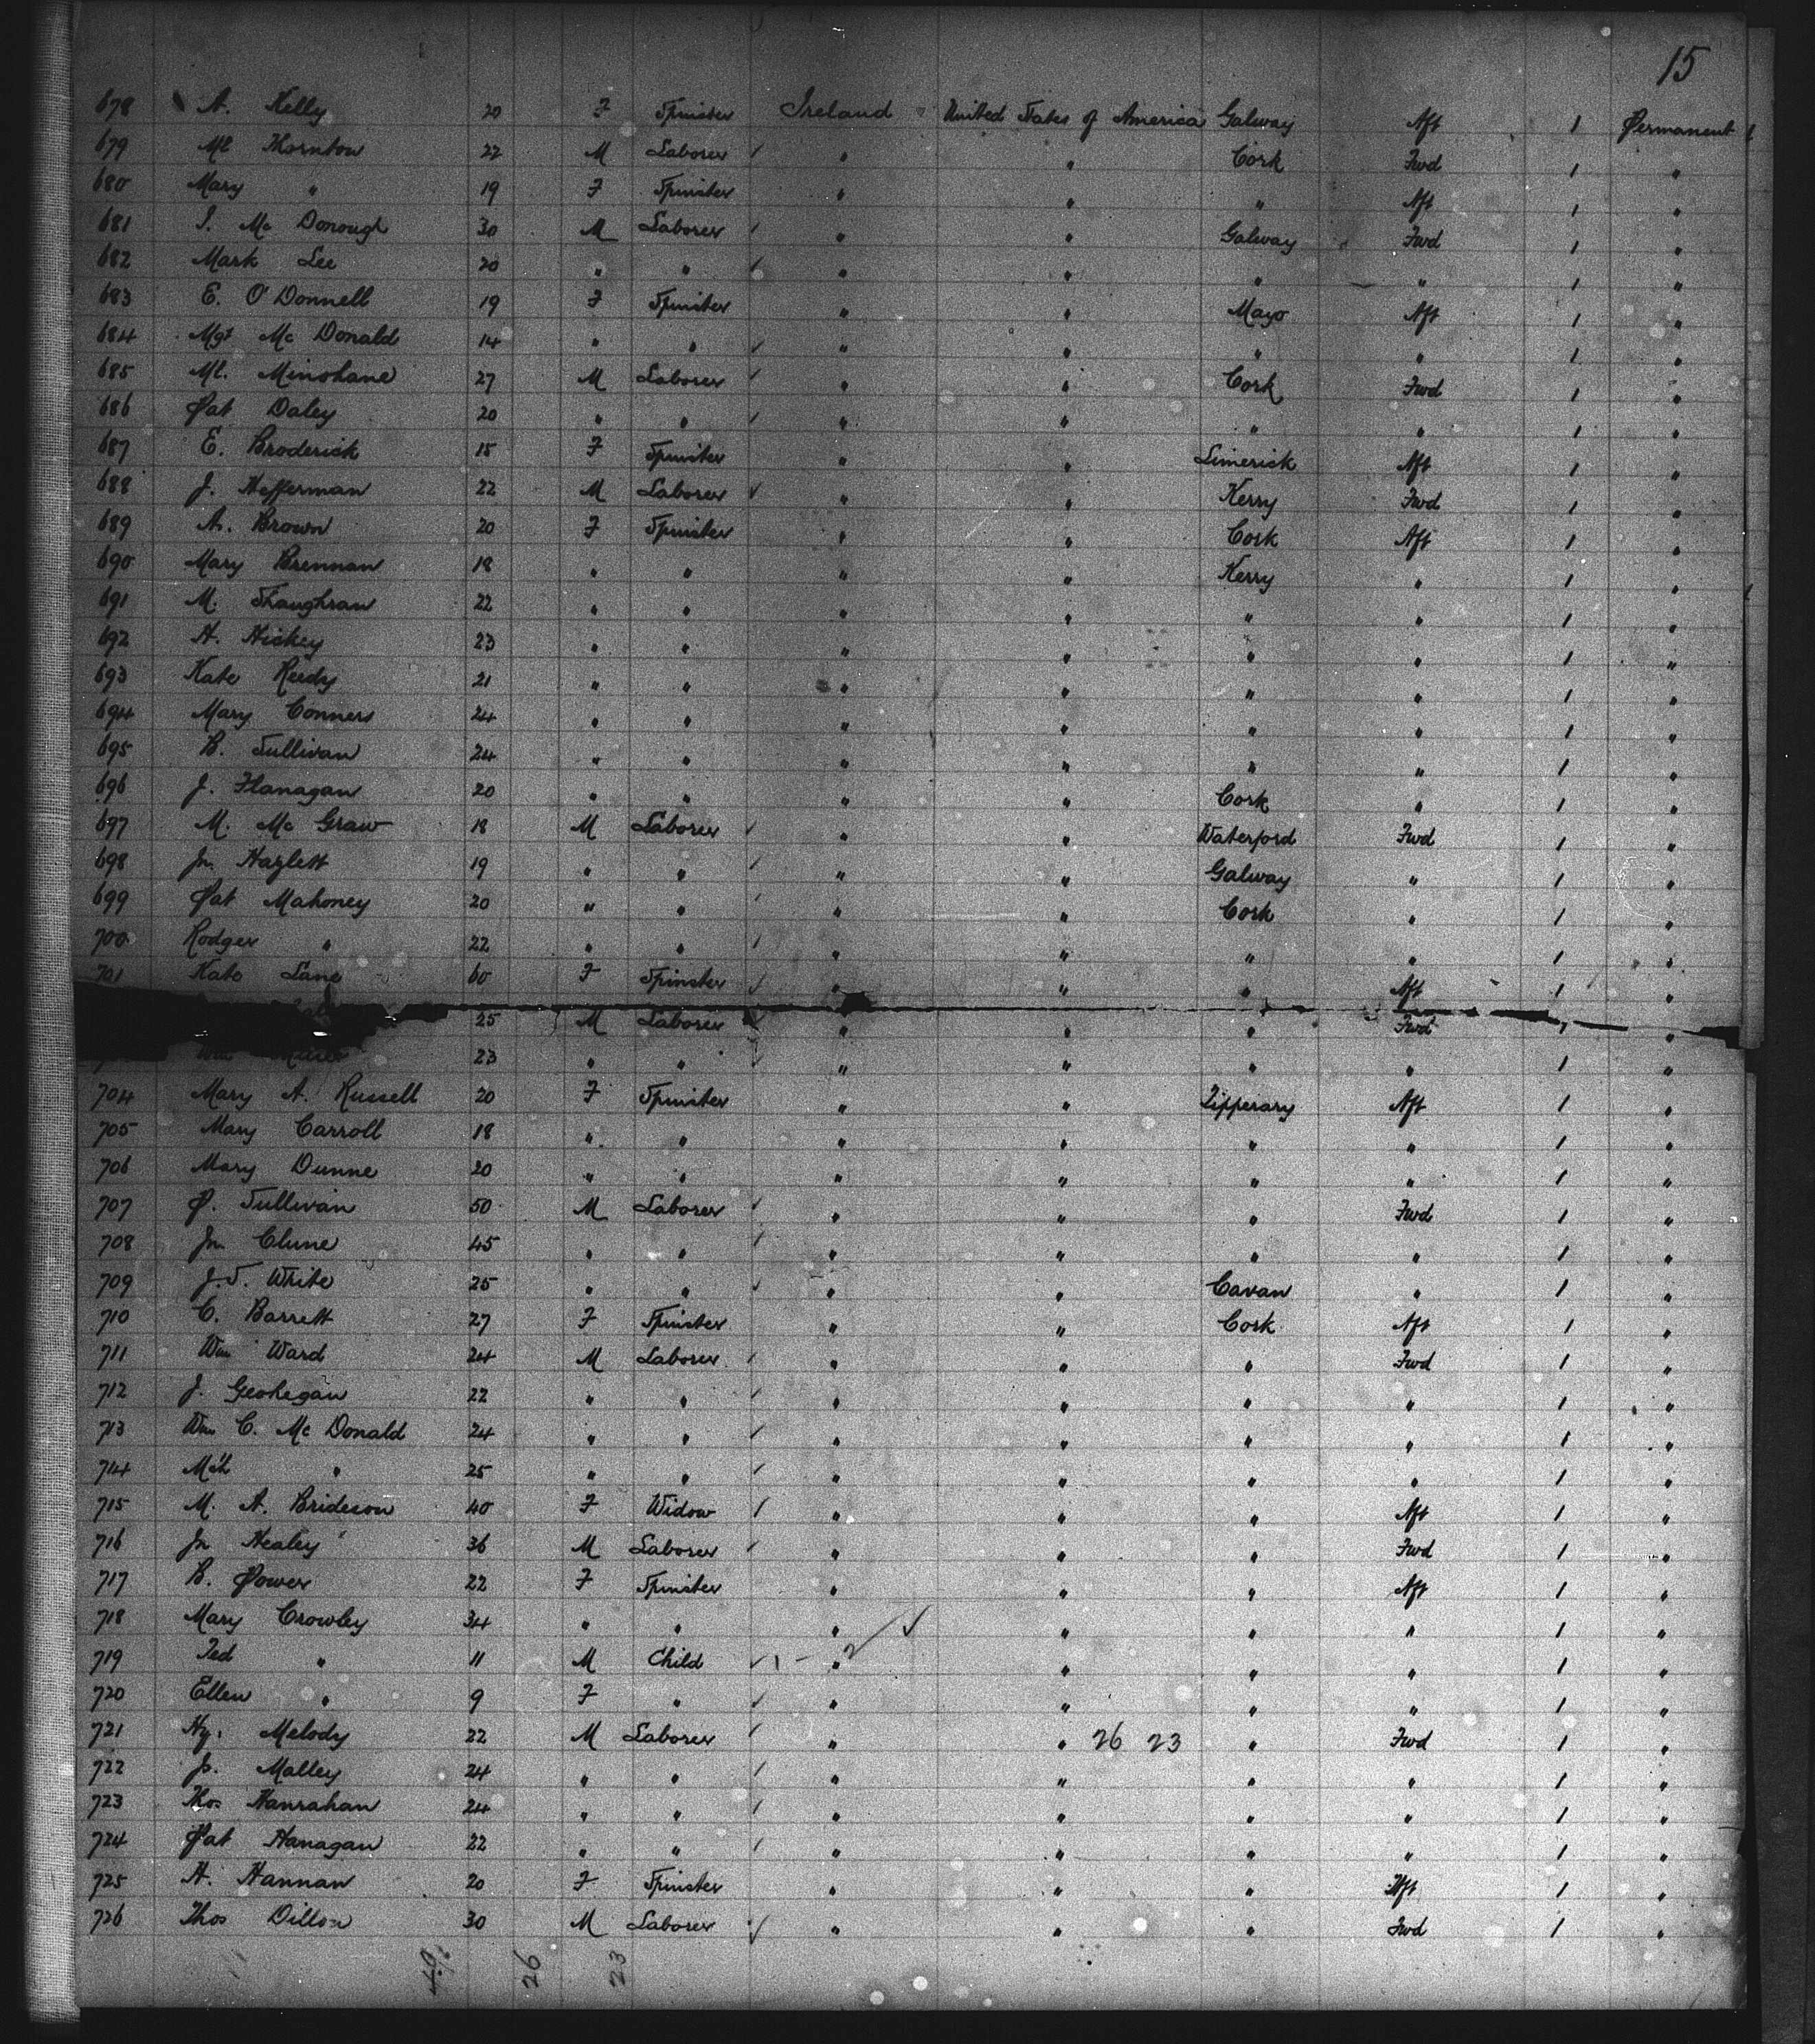 15
678 A. Kelly 20 F Spinster Ireland United States of America Galway Aft 1 Permanent
679 Ml Thornton 22 M Laborer " " Cork Fwd 1 "
680 Mary " 19 F Spinster " " " Aft 1 "
681 I. Mc Donough 30 M Laborer " " Galway Fwd 1 "
682 Mark Lee 20 " " " " " " 1 "
683 E. O'Donnell 19 F Spinster " " Mayo Aft 1 "
684 Mgt Mc Donald 14 " " " " " " 1 "
685 Ml. Minohane 27 M Laborer " " Cork Fwd 1 "
686 Pat Daley 20 " " " " " " 1 "
687 E. Broderick 15 F Spinster " " Limerick Aft 1 "
688 J. Hefferman 22 M Laborer " " Kerry Fwd 1 "
689 A. Brown 20 F Spinster " " Cork Aft 1 "
690 Mary Brennan 18 " " " " Kerry " 1 "
691 M. Shaughran 22 " " " " " " 1 "
692 H. Hickey 23 " " " " " " 1 "
693 Kate Reedy 21 " " " " " " 1 "
694 Mary Conners 24 " " " " " " 1 "
695 B. Sullivan 24 " " " " " " 1 "
696 J. Flanagan 20 " " " " Cork " 1 "
697 M. Mc Graw 18 M Laborer " " Waterford Fwd 1 "
698 Jn. Hazlett 19 " " " " Galway " 1 "
699 Pat Mahoney 20 " " " " Cork " 1 "
700 Rodger " 22 " " " " " " 1 "
701 Kate Lane 60 F Spinster " " " Aft 1 "
25 M Laborer " " " Fwd 1 "
Wm 23 " " " " " " 1 "
704 Mary A. Russell 20 F Spinster " " Tipperary Aft 1 "
705 Mary Carroll 18 " " " " " " 1 "
706 Mary Dunne 20 " " " " " " 1 "
707 P. Sullivan 50 M Laborer " " " Fwd 1 "
708 Jn. Clune 45 " " " " " " 1 "
709 J.S. White 25 " " " " Cavan " 1 "
710 C. Barrett 27 F Spinster " " Cork Aft 1 "
711 Wm Ward 24 M Laborer " " " Fwd 1 "
712 J. Geohegan 22 " " " " " " 1 "
713 Wm C. Mc Donald 24 " " " " " " 1 "
714 Mch " 25 " " " " " " 1 "
715 M. A. Brideson 40 F Widow " " " Aft 1 "
716 Jn Healey 36 M Laborer " " " Fwd 1 "
717 B. Power 22 F Spinster " " " Aft 1 "
718 Mary Crowley 34 " " " " " " 1 "
719 Ted " 11 M Child " " " " 1 "
720 Ellen " 9 F " " " " " 1 "
721 Hy. Melody 22 M Laborer " " 26 23 " Fwd 1 "
722 Js. Malley 24 " " " " " " 1 "
723 Thos Hanrahan 24 " " " " " " 1 "
724 Pat Hanagan 22 " " " " " " 1 "
725 H. Hannan 20 F Spinster " " " Aft 1 "
726 Thos Dillon 30 M Laborer " " " Fwd 1 "
26 23